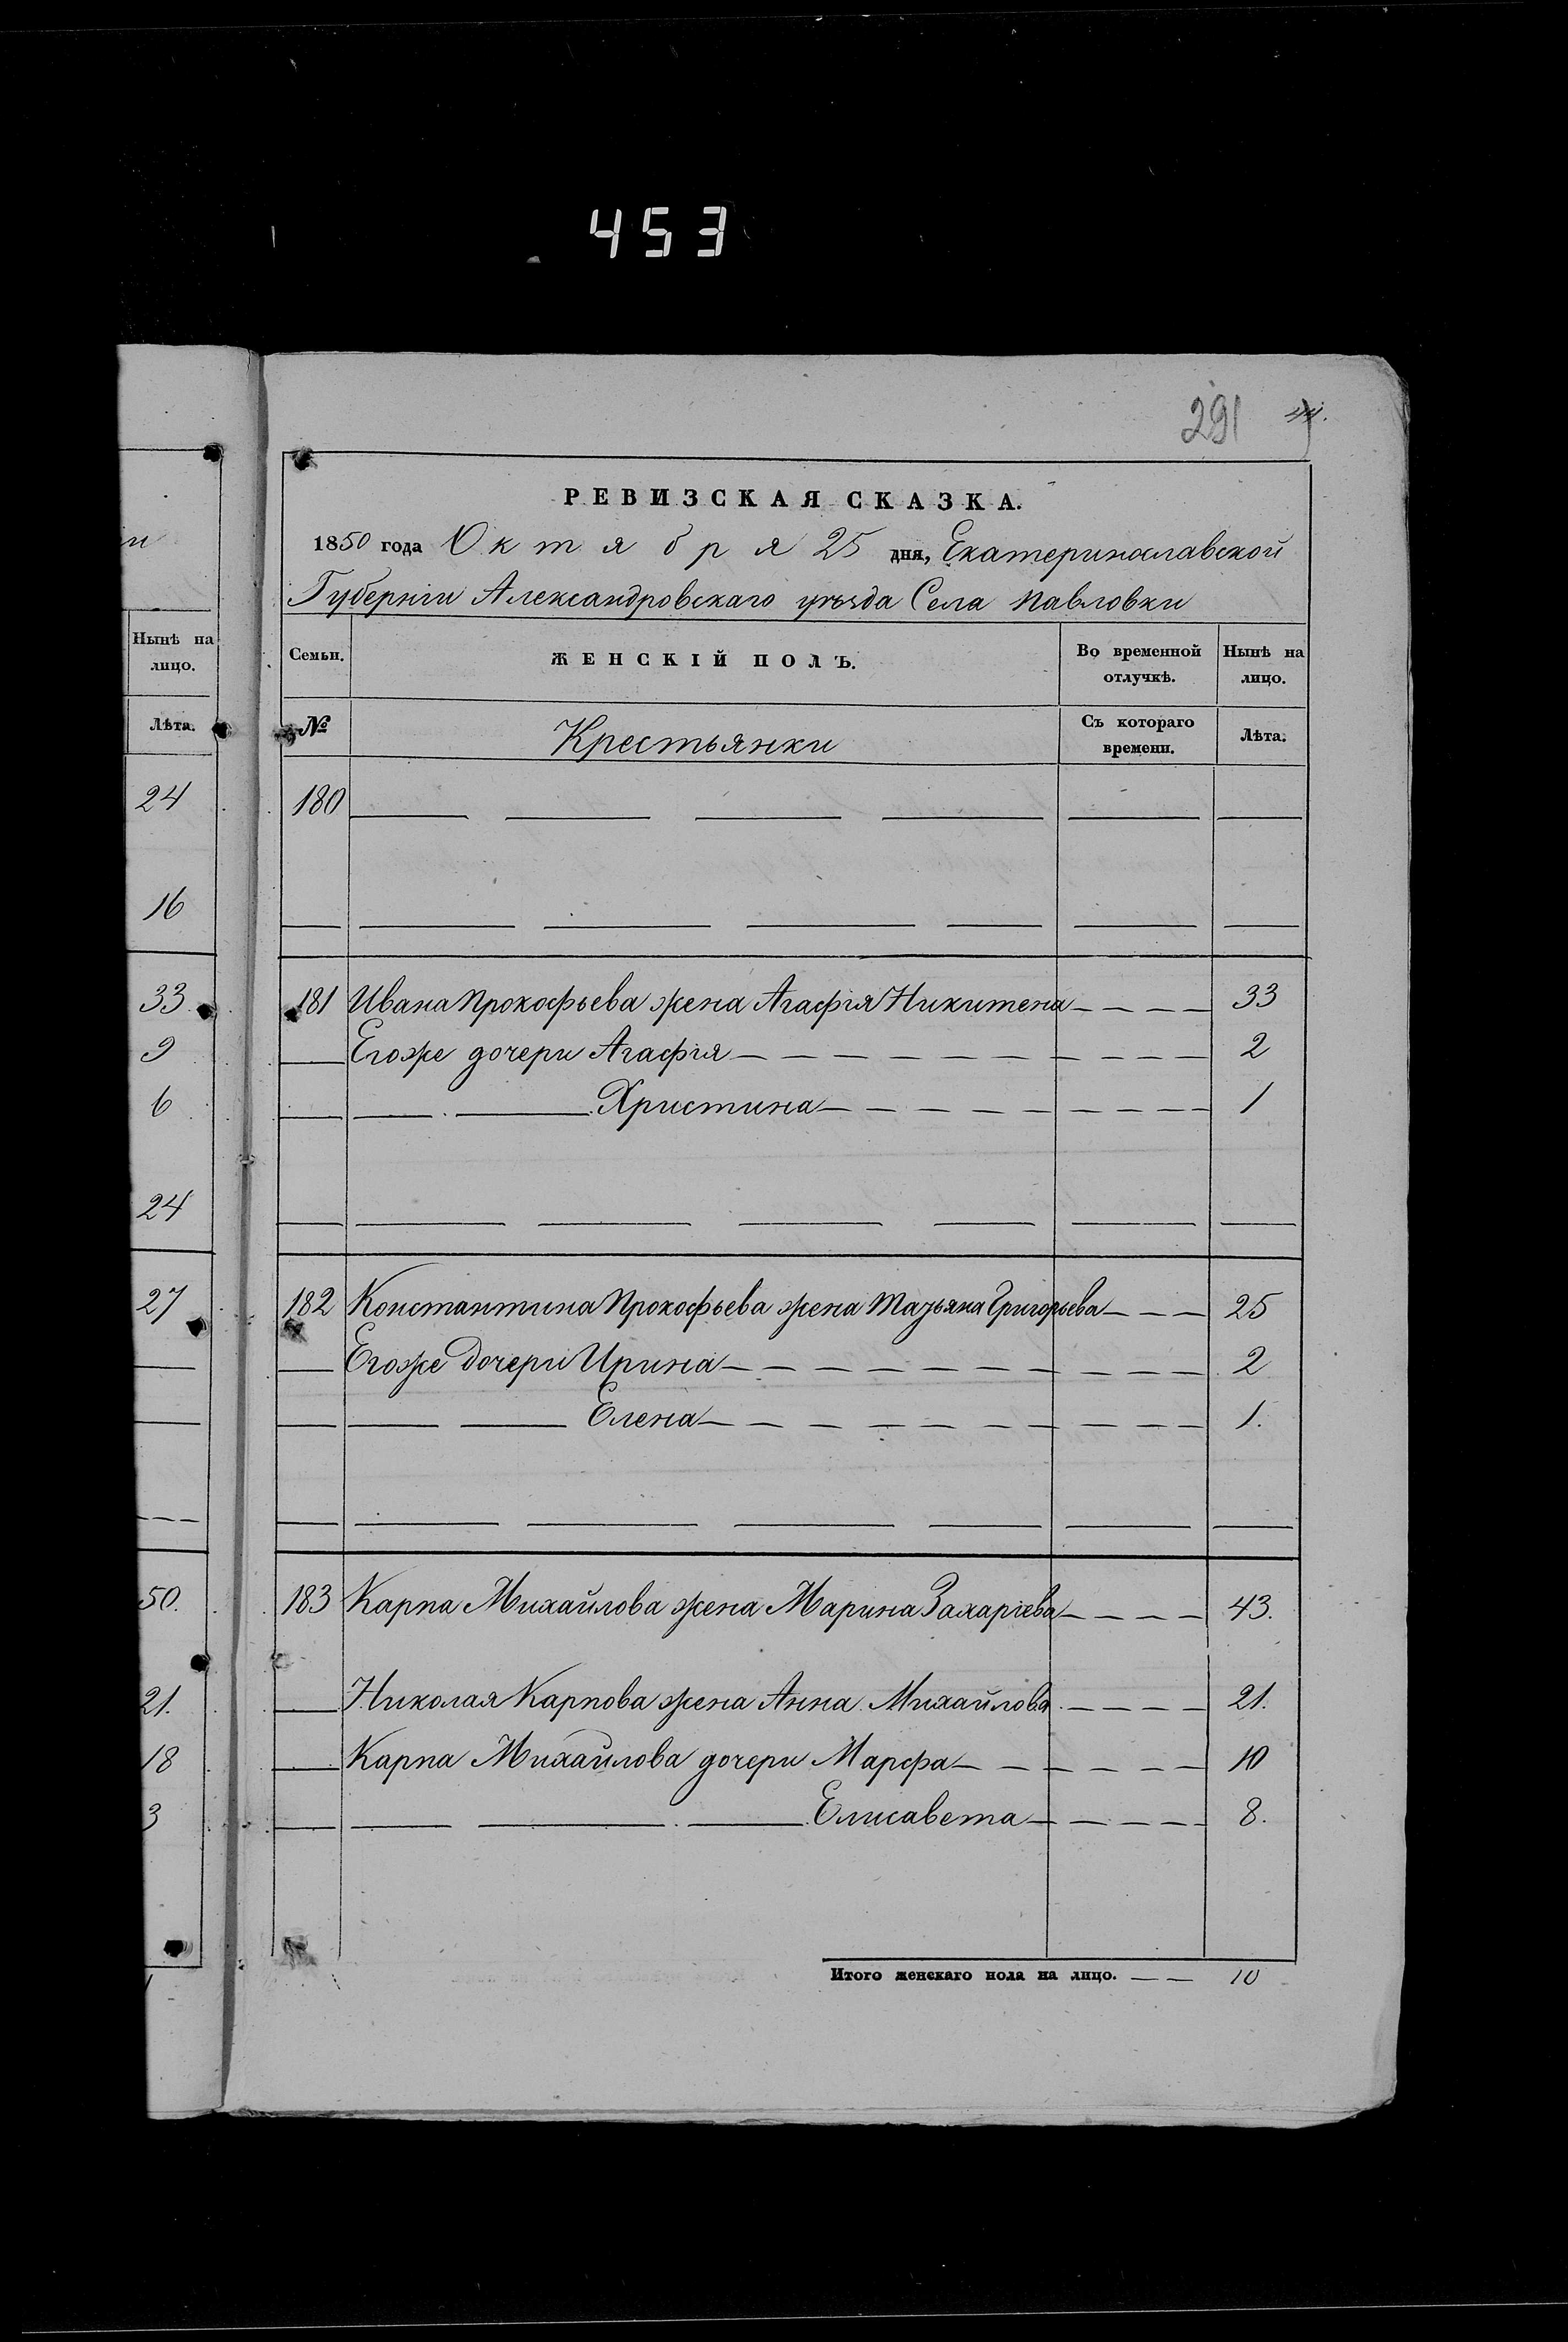 453
291
РЕВИЗСКАЯ СКАЗКА.
1850 года Октября 25 дня, Екатеринославской
Губерніи Александровскаго уѣзда Села Павловки
Нынѣ на лицо.
Лѣта.
24
16
33
9
6
24
27
50.
21.
18
3
Семьи. ЖЕНСКІЙ ПОЛЪ. Во временной отлучкѣ. Нынѣ на лицо.
№ Крестьянки Съ котораго времени. Лѣта.
180
181 Ивана Прокофьева жена Агафія Никитена 33
Егоже дочери Агафія 2
Христина 1
182 Константина Прокофьева жена Татьяна Григорьева 25
Егоже дочери Ирина 2
Елена 1.
183 Карпа Михайлова жена Марина Захаріева 43.
Николая Карпова жена Анна Михайлова 21.
Карпа Михайлова дочери Марфа 10
Елисавета 8.
Итого женскаго пола на лицо. 10